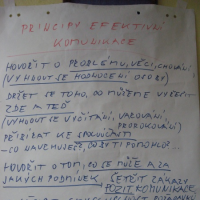 PRINCIPY EFEKTIVNÍ
KOMUNIKACE
HOVOŘIT O PROBLÉMU, VĚCI, CHOVÁNÍ
VYHNOUT SE HODNOCENÍ OSOBY
DRŽET SE TOHO, CO MŮŽEME VYŘEŠIT
ZDE A TEĎ
(VYHNOUT SE VYČÍTÁNÍ, VAROVÁNÍ,
PROROKOVÁNÍ)
HOVOŘIT O TOM, CO SE MŮŽE A ZA
JAKÝCH PODMÍNEK
ŠETŘIT ZÁKAZY
POZIT. KOMUNIKACE